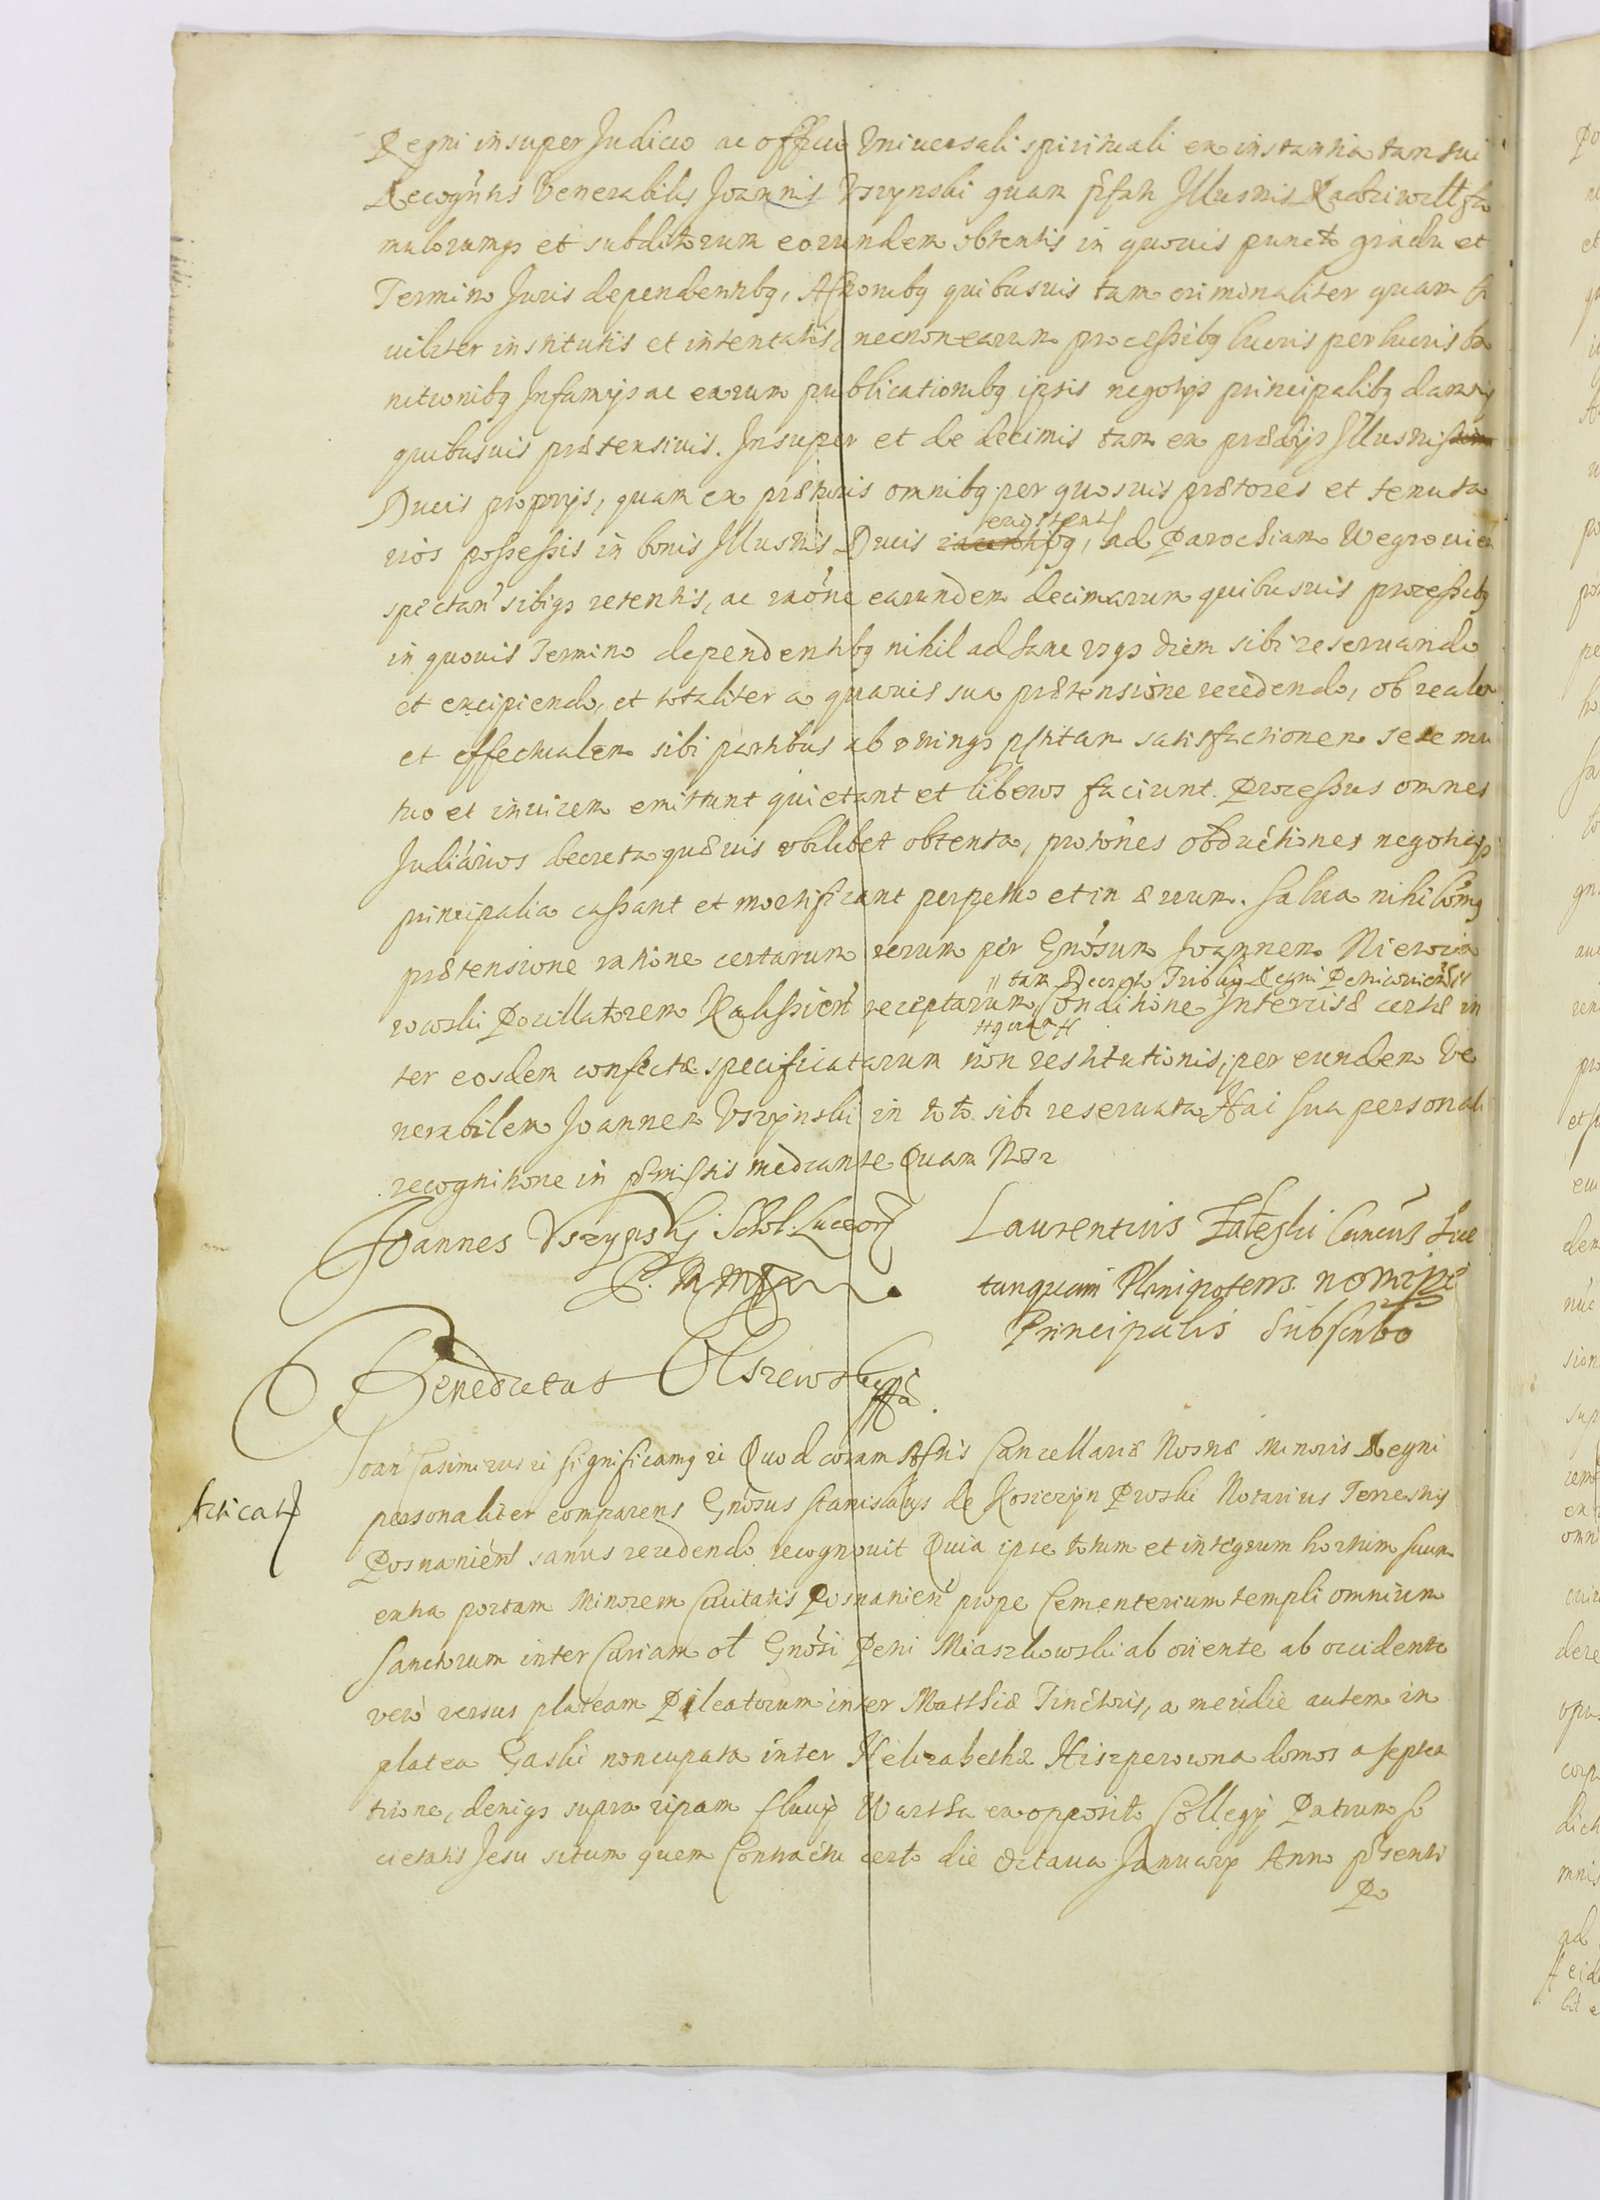 Regni insuper Judicio ac officio Vniuersali spirituali ex instantia tam sui
Recogñtis Venerabilis Joannis Vszynski quam p̃fati Illusmis Radziwill fa
mulorumqȝ et subditorum eorundem obtentis in quouis puncto gradu et
Termino Juris dependentibq, Actionibq quibusuis tam criminaliter quam ci
uiliter institutis et intentatis, necnon earum processibq lucris perlucris ba
nitionibq Infamijs ac earum publicationibq ipsis negotijs principalibq damnis
quibusuis prætensiuis. Insuper et de decimis tam ex prædijs Illustrissimi
Ducis proprijs, quam ex præturis omnibq per quosuis prætores et tenuta
rios possessis in bonis Illusmis Ducis existen: ad Parochiam Wegrouien
spectan̄ sibiqȝ retentis, ac raõne earundem decimarum quibusuis processibq
in quouis Termino dependentibq nihil ad hanc vsqȝ diem sibi reseruando
et excipiendo, et totaliter a quauis sua prætensione recedendo, ob realem
et effectualem sibi partibus ab vtrinqȝ p̃stitam satisfactionem sese mu
tuo et inuicem emittunt quietant et liberos faciunt. Processus omnes
Judiciarios decreta quæuis vbilibet obtenta, protõnes obductiones negotiaqȝ
principalia cassant et mortificant perpetuo et in æuum. Salua nihilomq
prætensione ratione certarum rerum per Gnõsum Joannem Niewia
rowski Pocillatorem Kalissien̄ receptarum
tam Decreto Tribulis Regni Petricouien̄
quam
Conditione Intercisæ certæ in
ter eosdem confectæ specificatarum non restitutionis, per eundem Ve
nerabilem Joannem Vszynski in toto sibi reseruata Hac sua personali
recognitione in p̃missis mediante Quam Nos ꝛ
Joannes Vszynskj Schol: Luceor
Laurentius Zaleski Canc̄us Luc
tanquam Plenipotens nomine
Principalis Subscribo
Benedictus Olszewski
Joan̄ Casimirus ꝛi significamq ꝛi Quod coram Actis Cancellariæ Nosræ Minoris Regni
Acticat
personaliter comparens Gnõsus Stanislaus de Kosiczyn Prvski Notarius Terrestris
Posnanien̄ sanus recedendo recognouit Quia ipse totum et integrum hortum suum
extra portam Minorem Ciuitatis Posnanien̄ prope Cementerium templi omnium
Sanctorum inter Curiam ol Gnõsi Petri Miaszkowski ab oriente ab occidente
verò versus plateam Pileatorum inter Matthiæ Tinctoris, a meridie autem in
platea Gaski noncupata inter Helizabethæ Hiszperowna domos a septen
trione, deniqȝ supra ripam fluuij Wartha ex opposito Collegij Patrum So
cietatis Jesu situm quem Contractu certo die Octaua Januarij Anno p̃senti